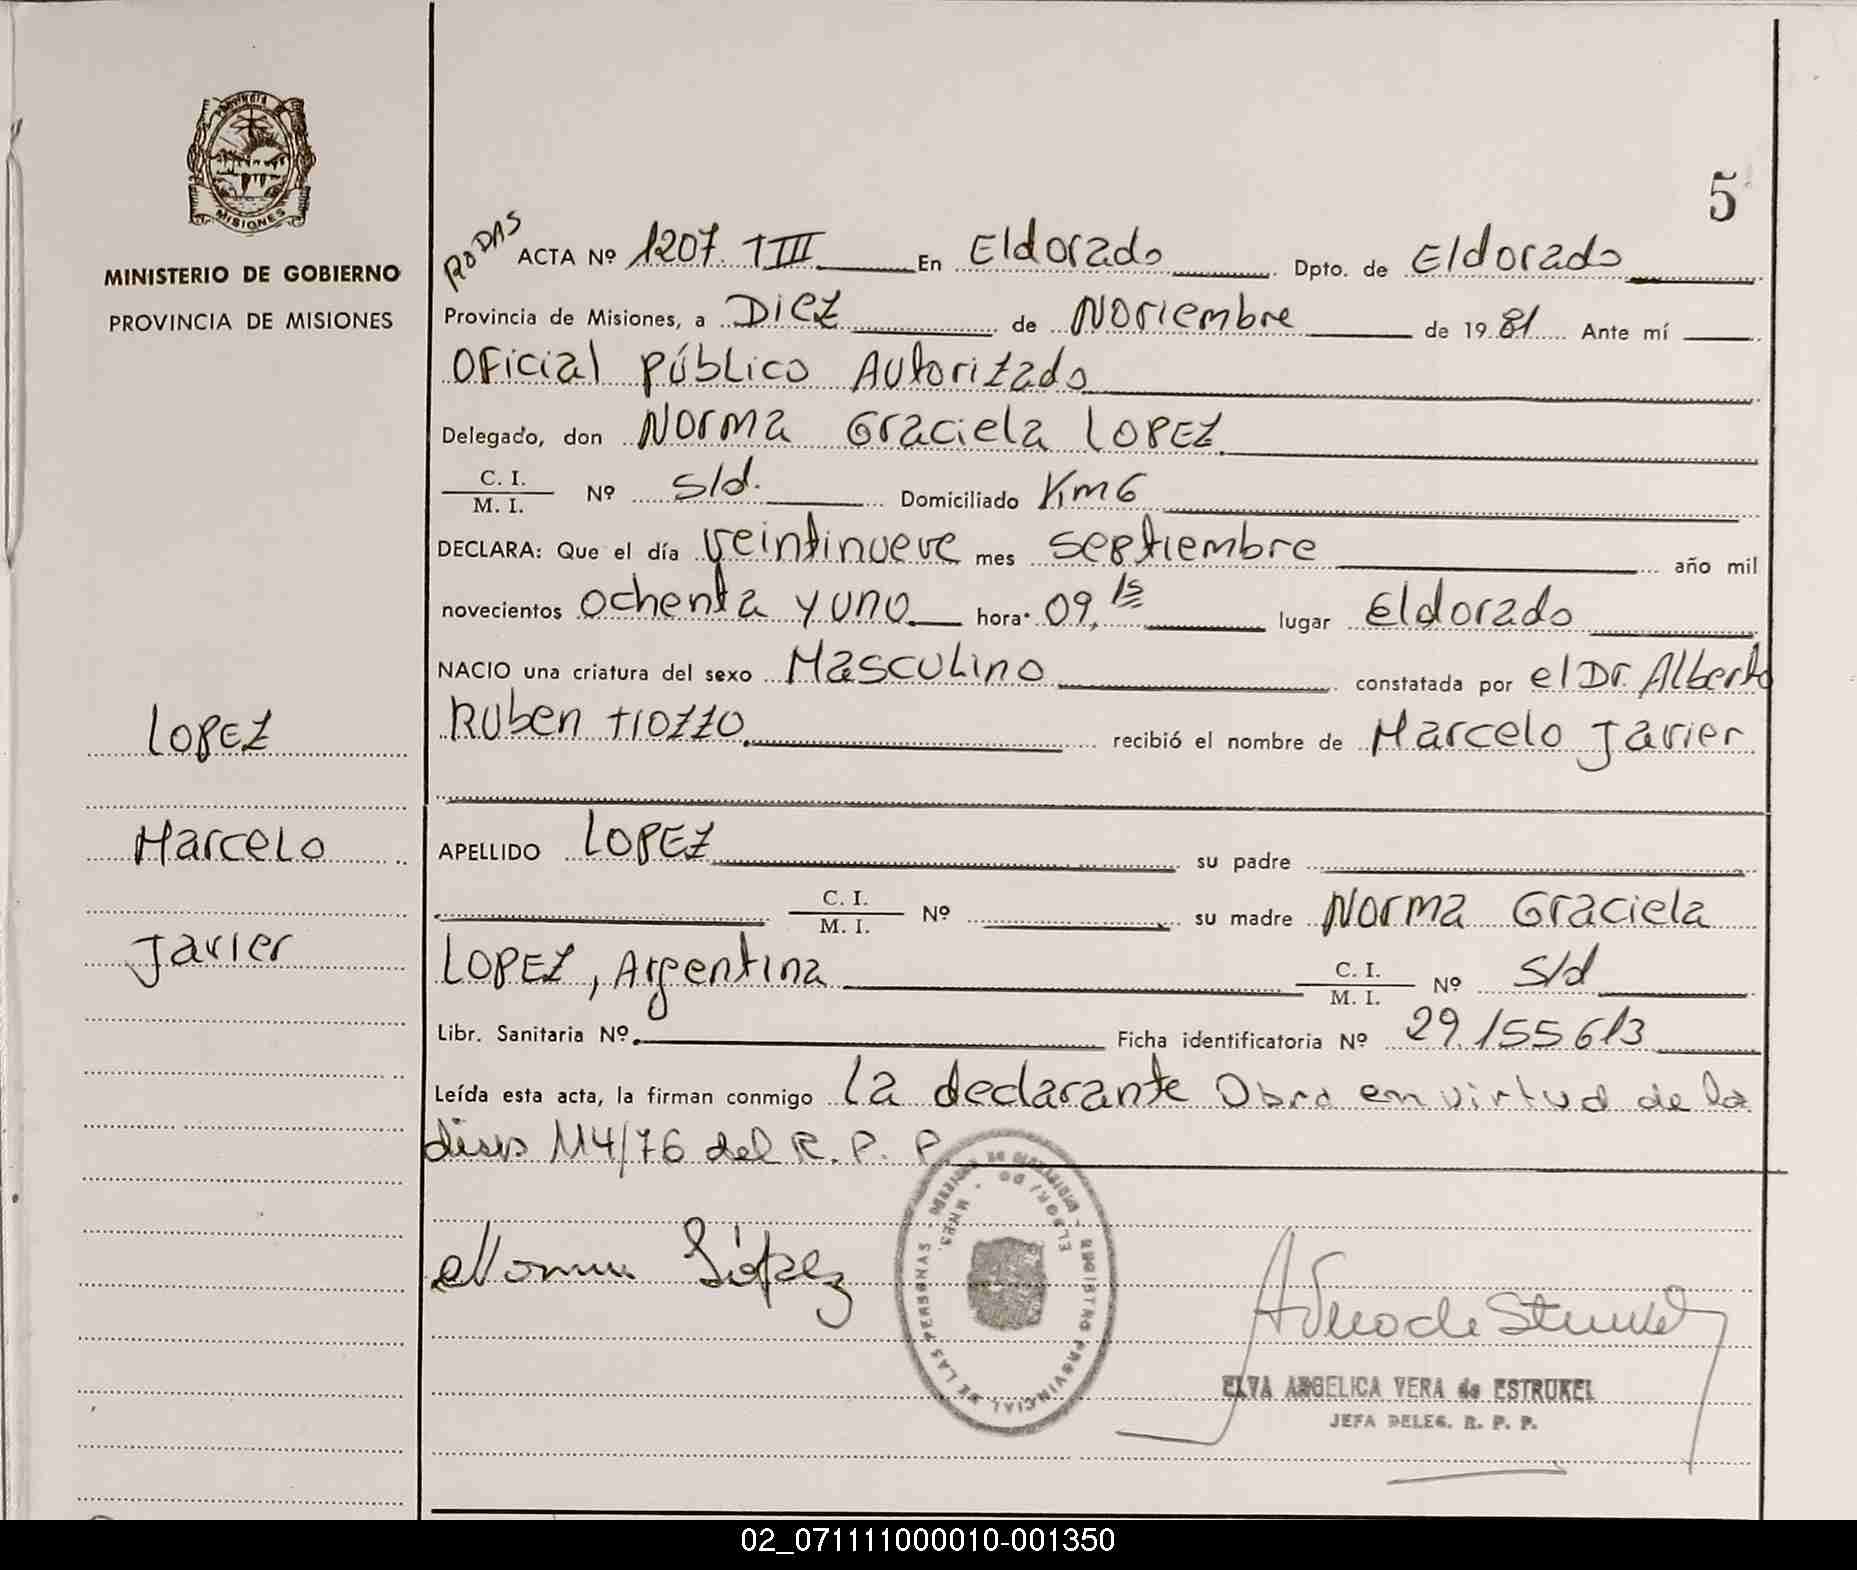 PROVINCIA
MISIONES
MINISTERIO DE GOBIERNO
PROVINCIA DE MISIONES
5
RODAS
ACTA Nº 1207 TIII En Eldorado Dpto. de Eldorado
Provincia de Misiones, a Diez de Noviembre de 19 81 Ante mí
Oficial Público Autorizado
Delegado, don Norma Graciela LOPEZ
C. I.
M. I. Nº s/d. Domiciliado Km6
DECLARA: Que el día veintinueve mes septiembre año mil
novecientos ochenta y uno hora 09,15 lugar Eldorado
NACIO una criatura del sexo Masculino constatada por el Dr. Alberto
Ruben Tiozzo recibió el nombre de Marcelo Javier
LOPEZ
Marcelo
Javier
APELLIDO LOPEZ su padre
C. I.
M. I. Nº su madre Norma Graciela
LOPEZ, Argentina C. I.
M. I. Nº s/d
Libr. Sanitaria Nº Ficha identificatoria Nº 29.155613
Leída esta acta, la firman conmigo la declarante Obra en virtud de la
disp 114/76 del R. P. P.
Norma López
REGISTRO PROVINCIAL DE LAS PERSONAS
ELDORADO
MNES.
ELVA ANGELICA VERA de ESTRUKEL
JEFA DELEG. R. P. P.
02_071111000010-001350